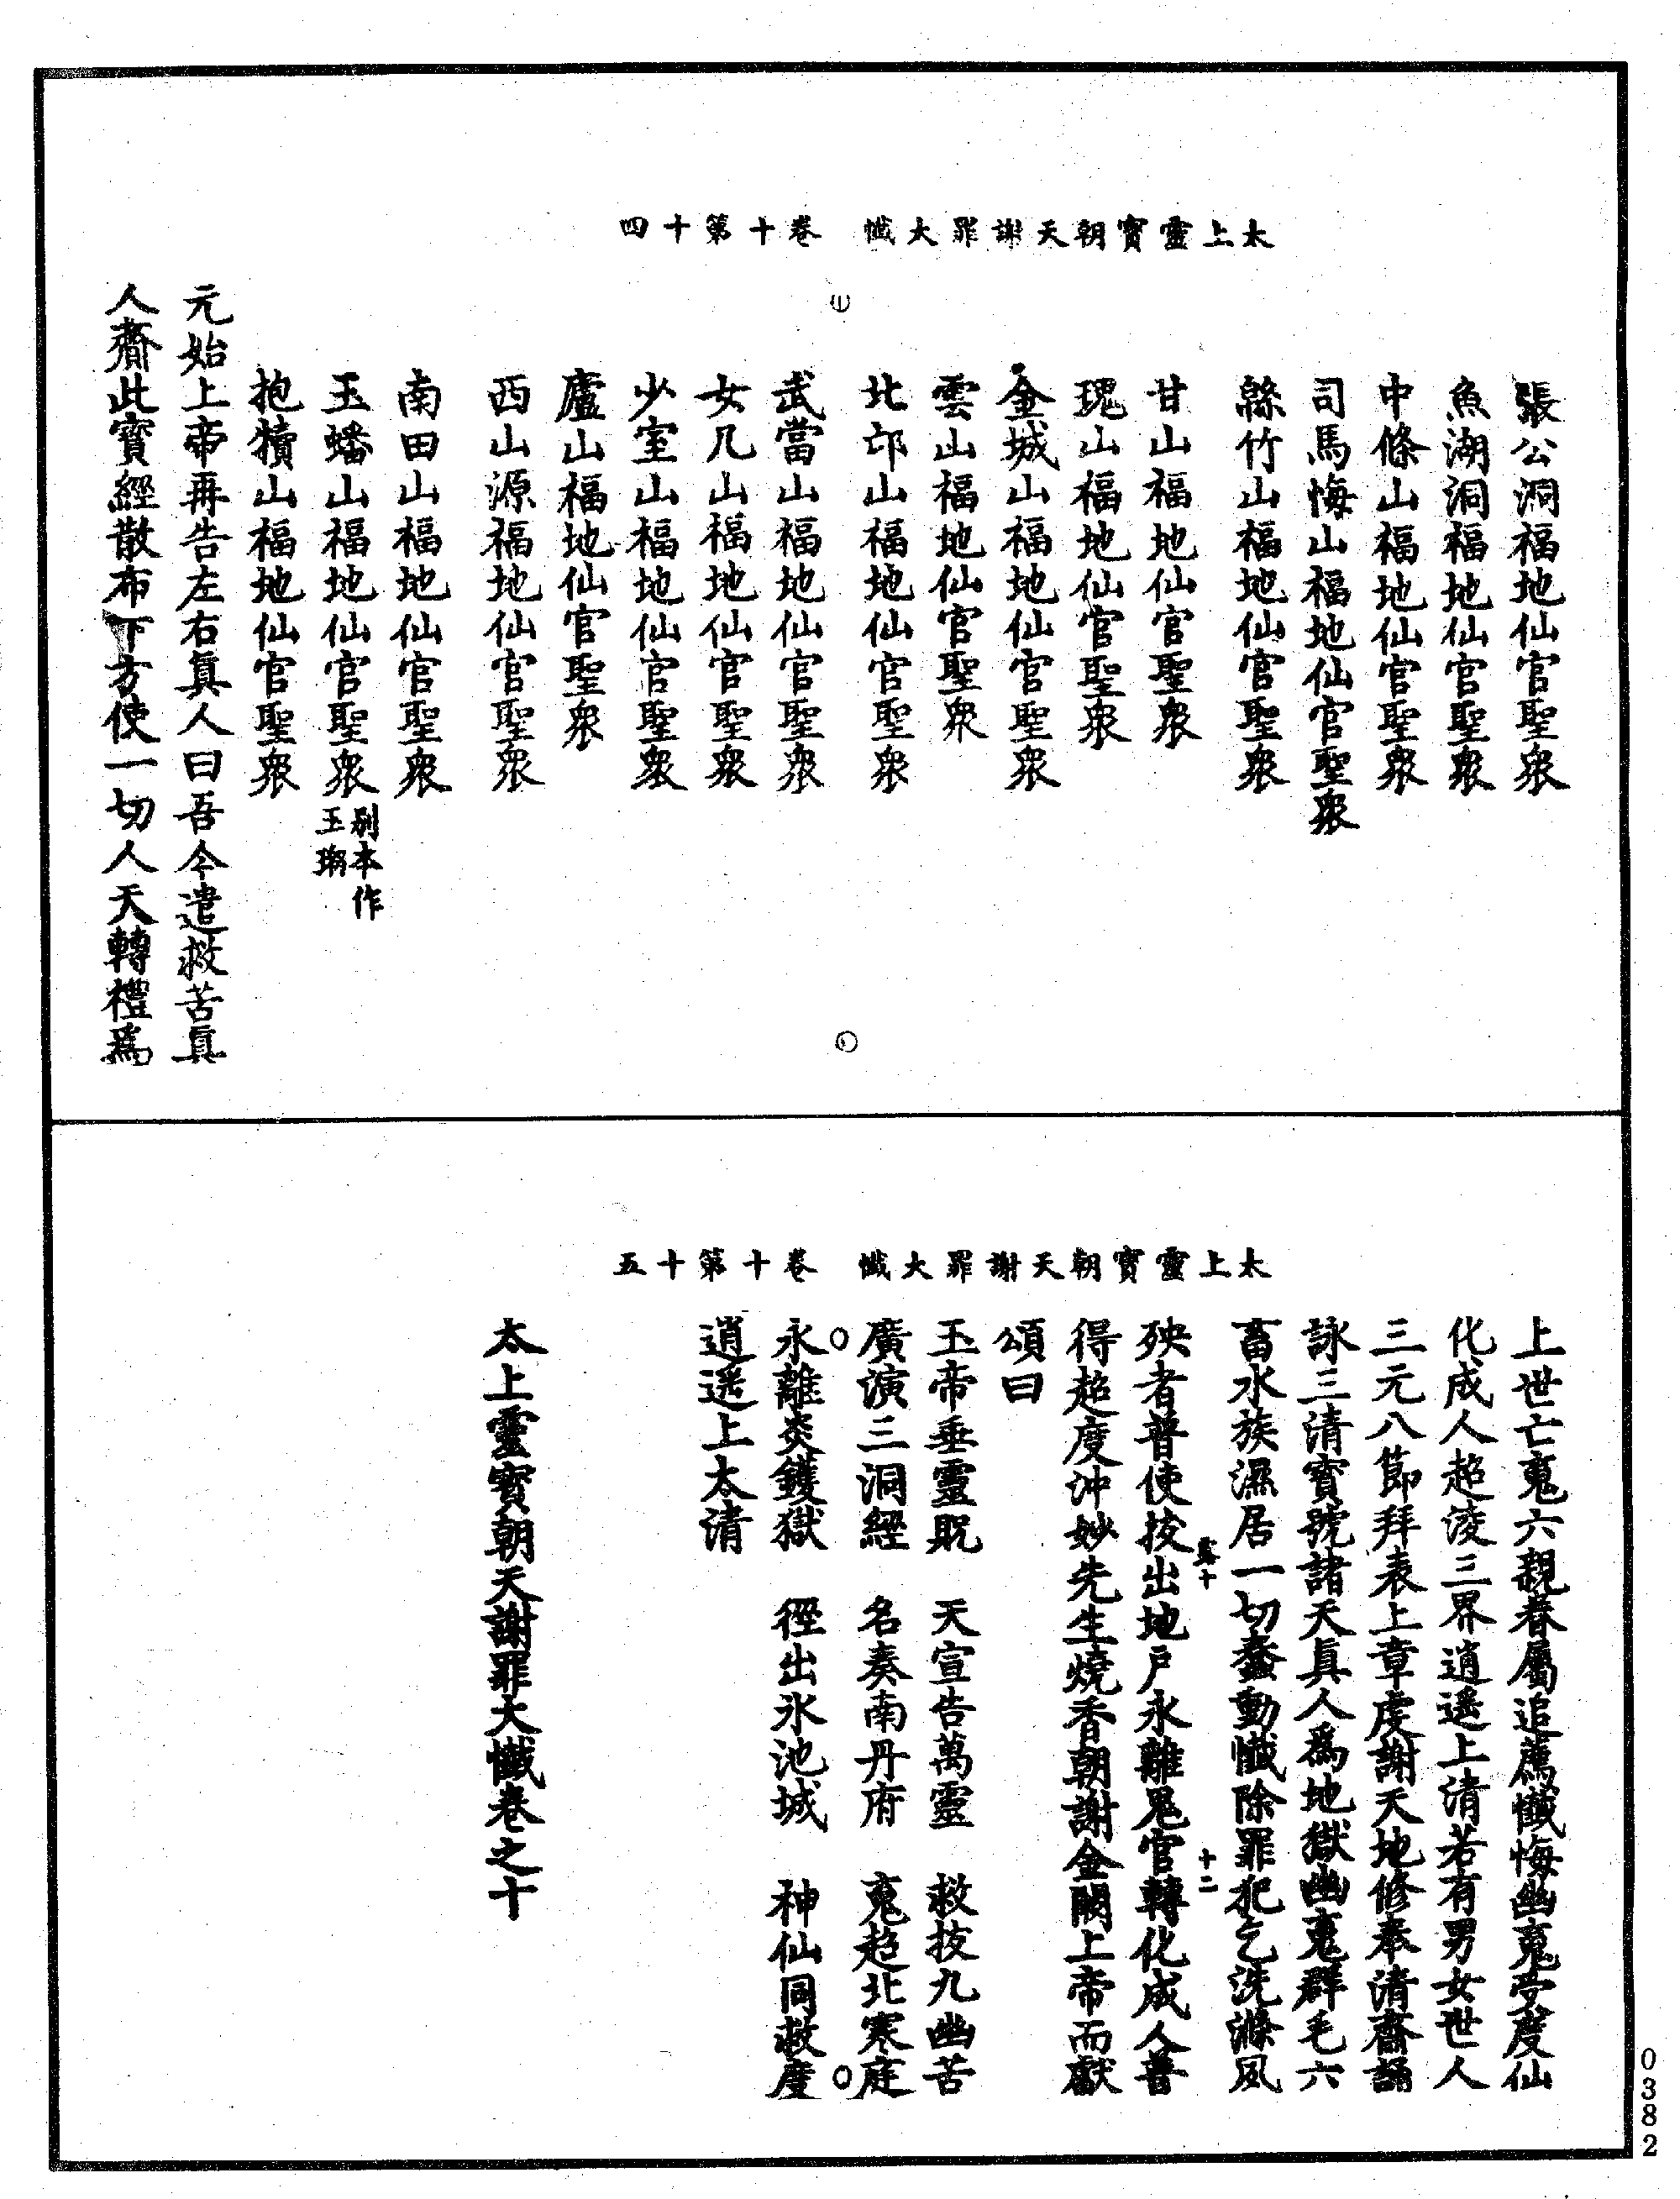 太上靈寶朝天謝罪大懺　卷十第十四
張公洞福地仙官聖衆
魚湖洞福地仙官聖衆
中條山福地仙官聖衆
司馬悔山福地仙官聖衆
緜竹山福地仙官聖衆
甘山福地仙官聖衆
瑰山福地仙官聖衆
金城山福地仙官聖衆
雲山福地仙官聖衆
北邙山福地仙官聖衆
武當山福地仙官聖衆
女几山福地仙官聖衆
少室山福地仙官聖衆
廬山福地仙官聖衆
西山源福地仙官聖衆
南田山福地仙官聖衆
玉蟠山福地仙官聖衆別本作玉
抱犢山福地仙官聖衆
元始上帝再告左右眞人曰吾今遣救苦眞
人齎此寳經散布下方使一切人天轉禮爲
太上靈寶朝天謝罪大懺　卷十第十五
上世亡䰟六親眷屬追薦懺悔幽䰟受度仙
化成人超淩三界逍遥上清若有男女世人
三元八節拜表上章虔謝天地修奉清齋誦
詠三清寳號諸天眞人爲地獄幽䰟群毛六
畜水族濕居一切蠢動懺除罪犯乞洗滌夙
殃者普使拔出地户永離鬼官轉化成人普
得超度沖妙先生燒香朝謝金闕上帝而獻
頌曰
玉帝垂靈貺　天宣告萬靈　救拔九幽苦
廣演三洞經　名奏南丹府　䰟超北寒庭
永離炎鑊獄　徑出氷池城　神仙同救度
逍遥上太清
太上靈寳朝天謝罪大懺卷之十
十二
0382